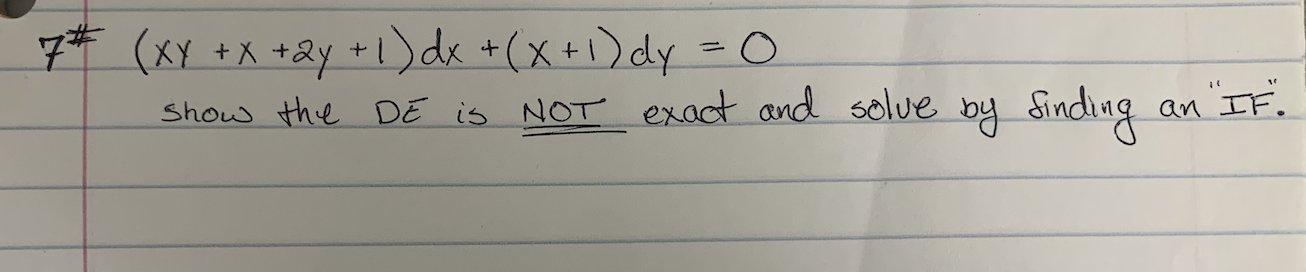 7# (xy + x + 2y + 1) dx + (x + 1) dy = 0
show the DE is NOT exact and solve by finding an "IF".